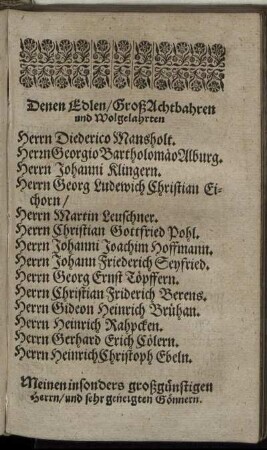 Denen Edlen/GroßAchtbahren
und Wolgelahrten
Herrn Diederico Mansholt.
Herrn Georgio Bartholomæo Alburg.
Herrn Johanni Klingern.
Herrn Georg Ludewich Christian Ei-
chorn/
Herrn Martin Leuschner.
Herrn Christian Gottfried Pohl.
Herrn Johanni Joachim Hoffmann.
Herrn Johann Friederich Seyfried.
Herrn Georg Ernst Töpffern.
Herrn Christian Friderich Berens.
Herrn Gideon Heinrich Brühan.
Herrn Heinrich Rahpcken.
Herrn Gerhard Erich Cölern.
Herrn Heinrich Christoph Ebeln.
Meinen insonders großgünstigen
Herrn/und sehr geneigten Gönnern.